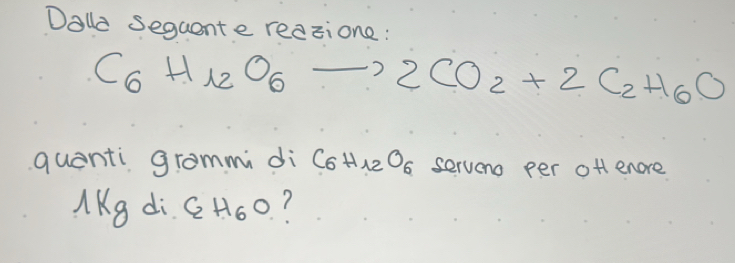 Dalla seguente reazione:
C6 H12 O6 → 2CO2 + 2 C2H6O
quanti grammi di C6H12O6 servono per ottenere
1Kg di C2H6O?